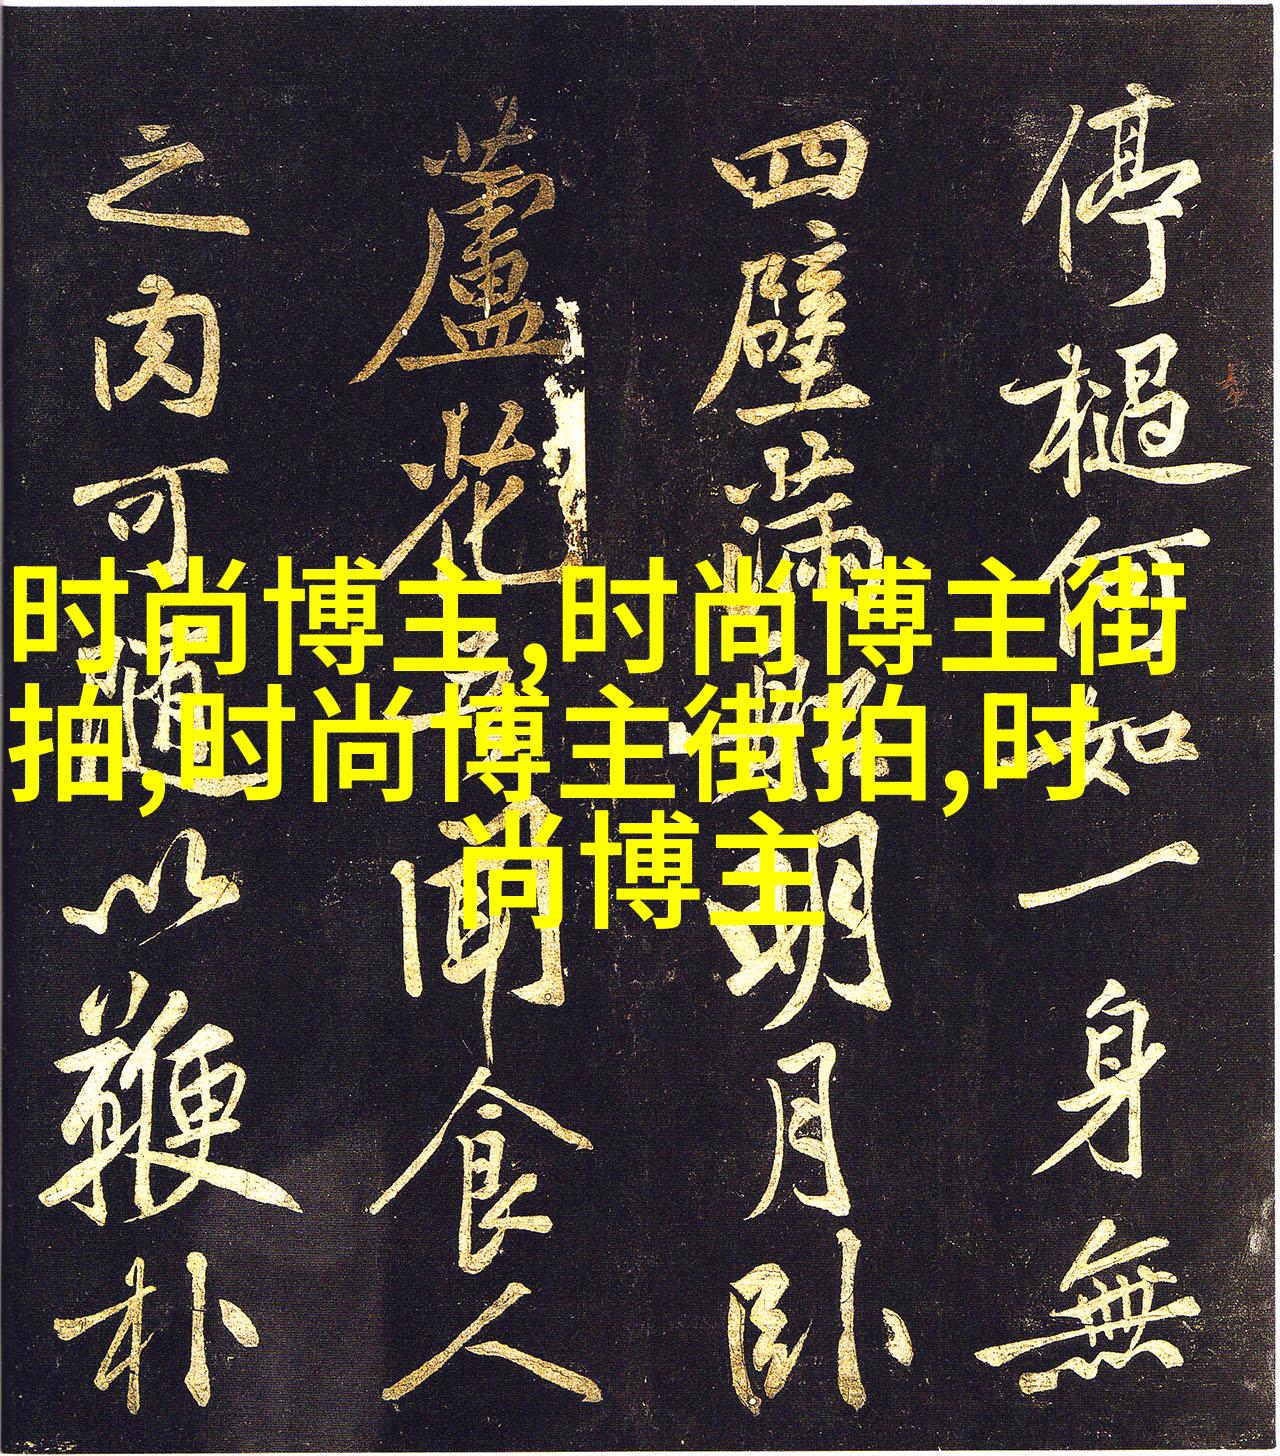 停檛何如一身無
四壁滿船明月卧
蘆花吾聞食人
之肉可隨以鞭朴
时尚博主,时尚博主街
拍,时尚博主街拍,时
尚博主